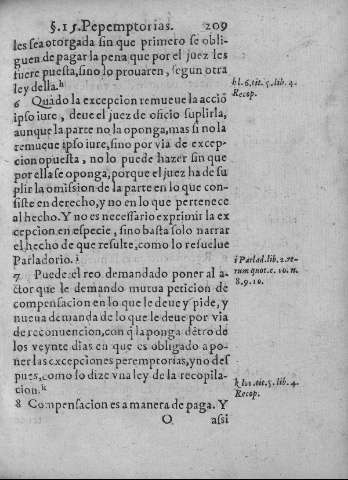 §.15.Pepemptorias. 209
les sea otorgada sin que primero se obli-
guen de pagar la pena que por el juez les
fuere puesta, sino lo prouaren, segun otra
ley della.h
h l.6.tit.5.lib.4.
Recop.
6 Quãdo la excepcion remueue la acciõ
ipso iure, deue el juez de oficio suplirla,
aunque la parte no la oponga, mas si no la
remueue ipso iure, sino por via de excep-
cion opuesta, no lo puede hazer sin que
por ella se oponga, porque el juez ha de su
plir la omission de la parte en lo que con-
siste en derecho, y no en lo que pertenece
al hecho. Y no es necessario exprimir la ex
cepcion en especie, sino basta solo narrar
el hecho de que resulte, como lo resuelue
Parladorio.i
i Parlad.lib.2.re-
rum quot.c.10.n.
8.9.10.
7 Puede el reo demandado poner al a-
ctor que le demando mutua peticion de
compensacion en lo que le deue y pide, y
nueua demanda de lo que le deue por via
de reconuencion, con q̃ la ponga dẽtro de
los veynte dias en que es obligado a po-
ner las excepciones peremptorias, y no des
pues, como lo dize vna ley de la recopila-
cion.k
k l.1.tit.5.lib.4.
Recop.
8 Compensacion es a manera de paga. Y
O assi